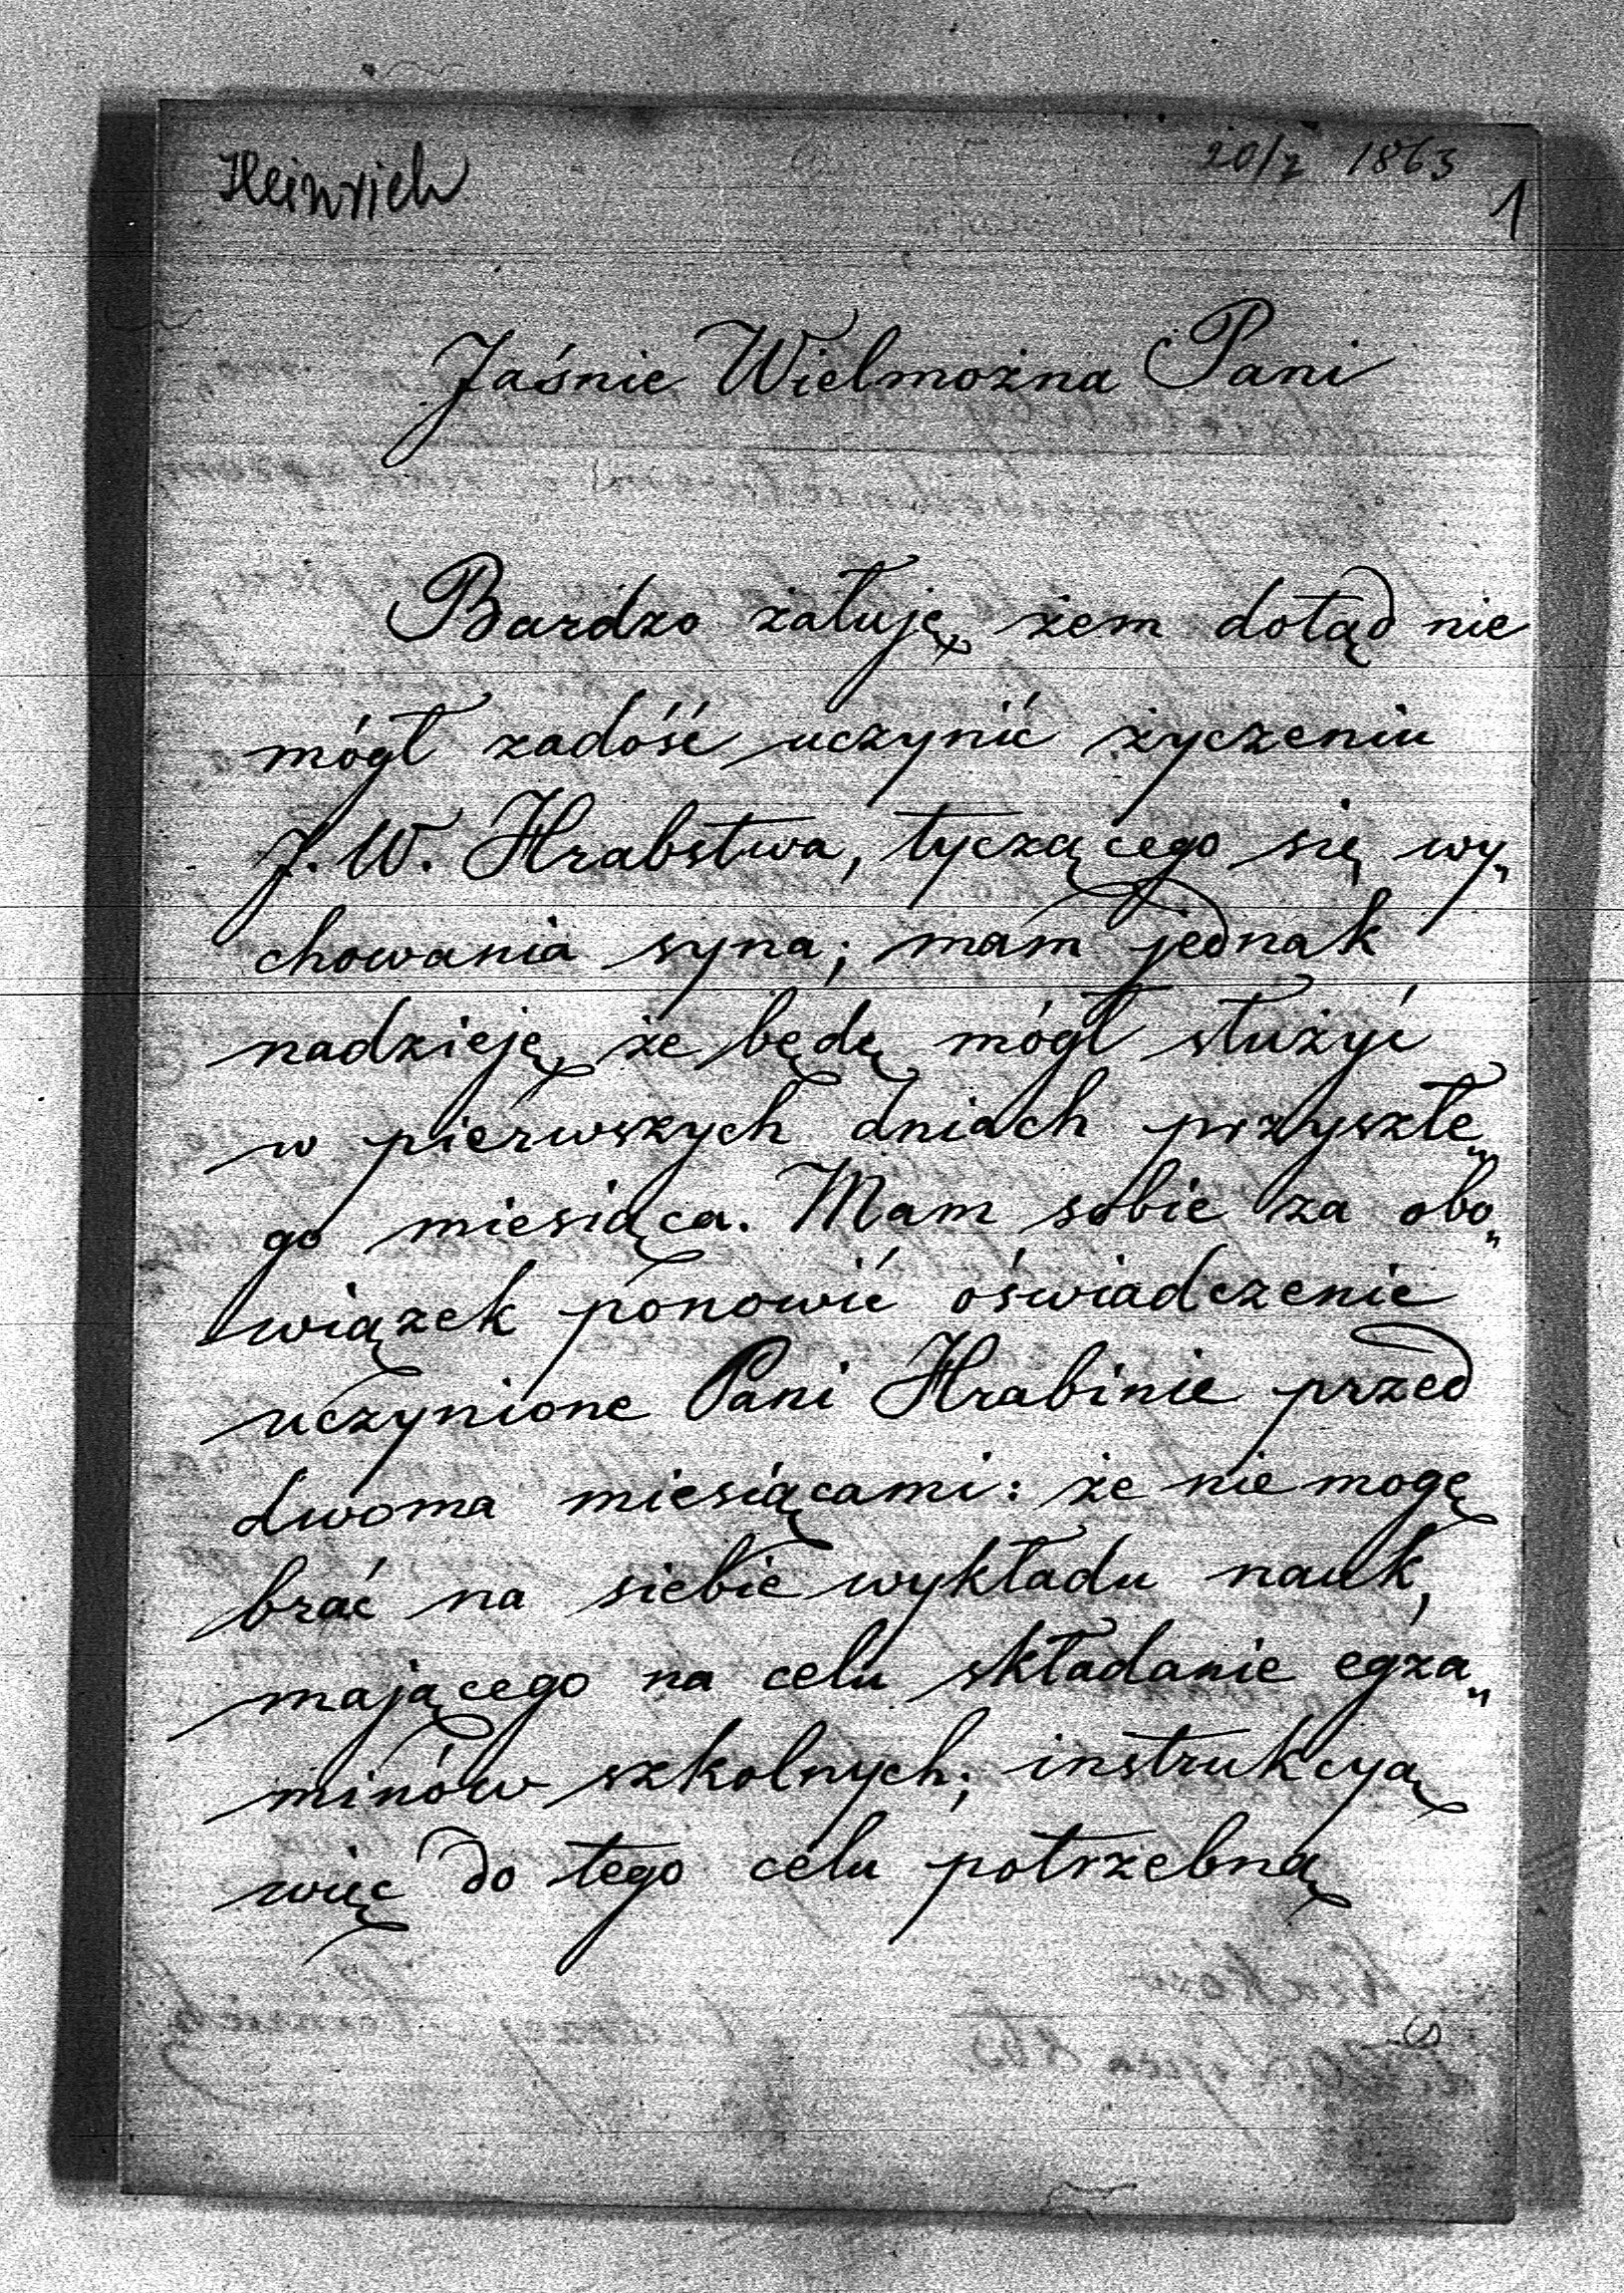 Heinrich
20/7 1863
1
Jaśnie Wielmożna Pani
Bardzo żałuję, żem dotąd nie
mógł zadość uczynić życzeniu
J. W. Hrabstwa, tyczącego się wy„
chowania syna; mam jednak
nadzieję, że będę mógł służyć
w pierwszych dniach przyszłe„
go miesiąca. Mam sobie za obo„
wiązek ponowić oświadczenie
uczynione Pani Hrabinie przed
dwoma miesiącami: że nie mogę
brać na siebie wykładu nauk,
mającego na celu składanie egza„
minów szkolnych; instrukcyą
więc do tego celu potrzebną